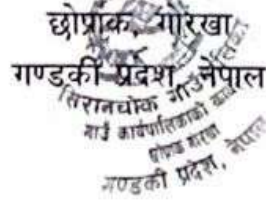 छोप्राक, गोरखा
गण्डकी प्रदेश, नेपाल
सिरानचोक गाउँपालिका
गाउँ कार्यपालिकाको कार्यालय
छोप्राक गोरखा
गण्डकी प्रदेश, नेपाल